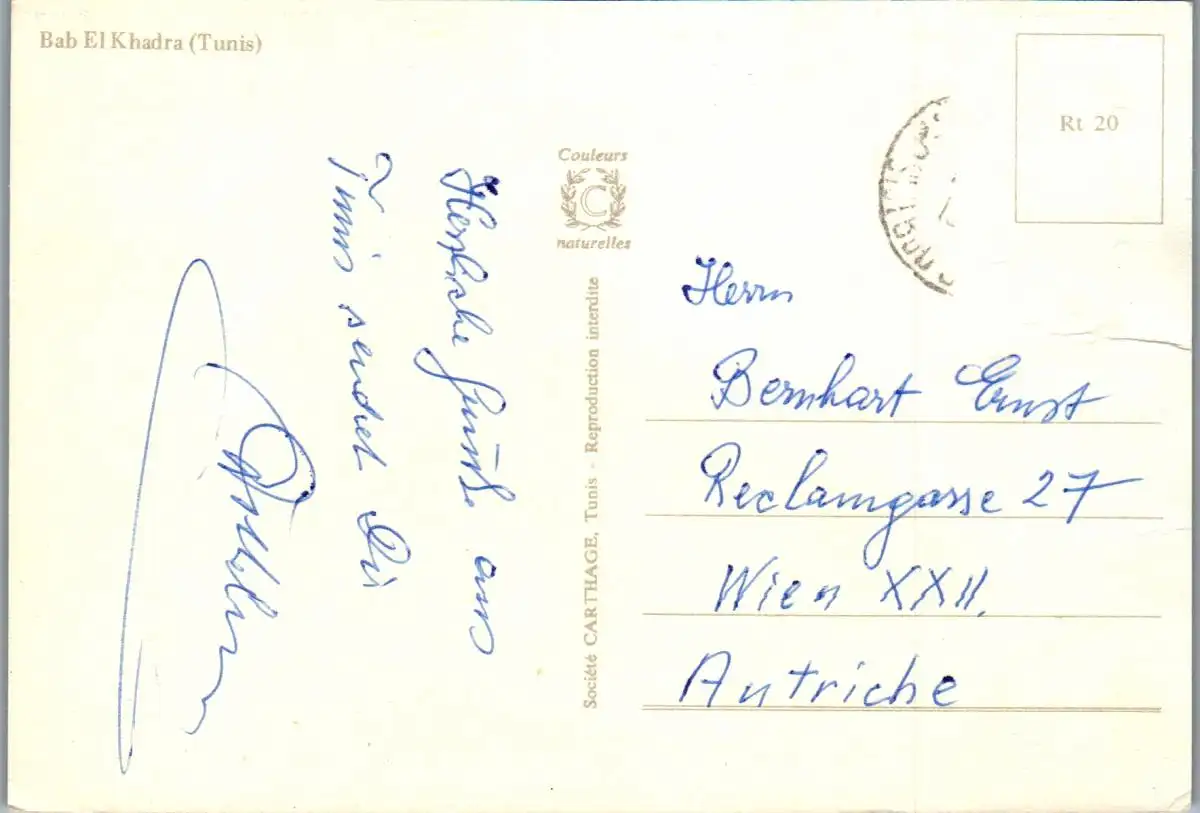 Bab El Khadra (Tunis)
Herzliche Grüße aus
Tunis sendet Dir
Couleurs
C
naturelles
Société CARTHAGE, Tunis - Reproduction interdite
Rt 20
Herrn
Bernhart Ernst
Reclamgasse 27
Wien XXII.
Autriche